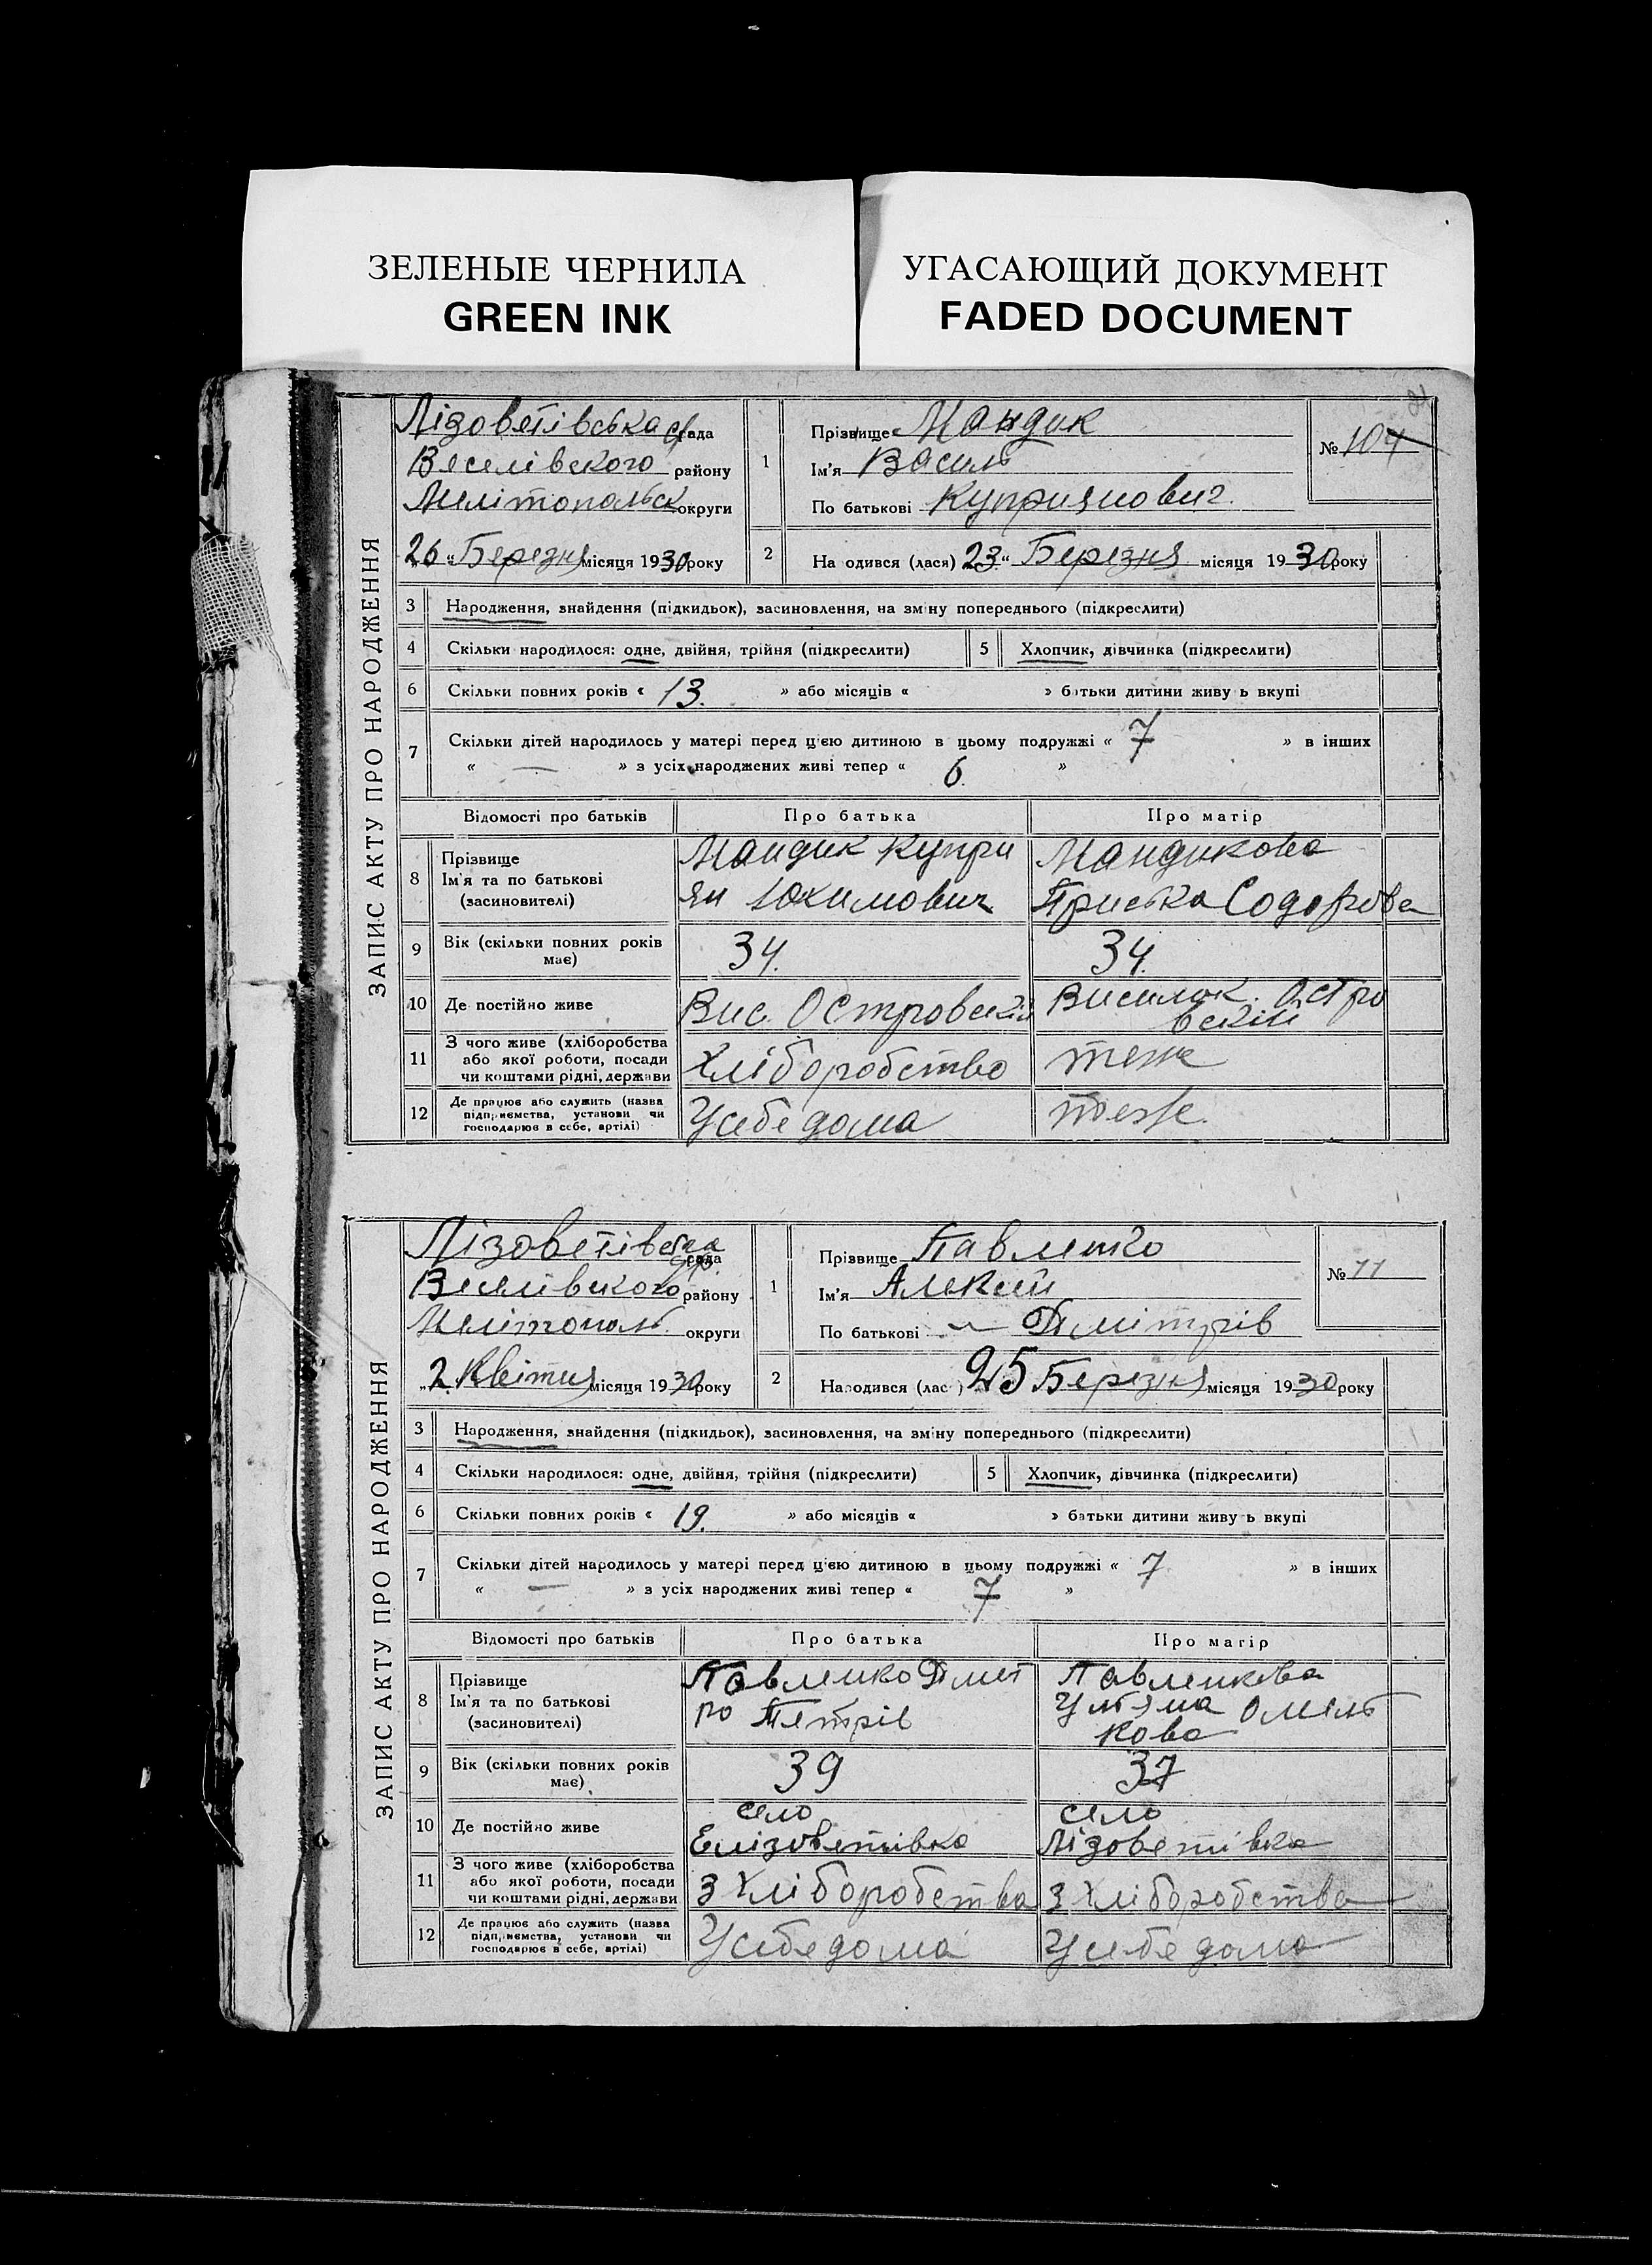 ЗЕЛЕНЫЕ ЧЕРНИЛА
GREEN INK
УГАСАЮЩИЙ ДОКУМЕНТ
FADED DOCUMENT
ЗАПИС АКТУ ПРО НАРОДЖЕННЯ
Лізоветівська с/рада
Веселівского району
Мелітопольск округи
26 „ Березня місяця 1930 року
1 Прізвище Мандик
Ім'я Василь
По батькові Куприянович.
№ 10
2 На одився (лася) 23 “ Березня місяця 1930 року
3 Народження, знайдення (підкидьок), засиновлення, на зміну попереднього (підкреслити)
4 Скільки народилося: одне, двійня, трійня (підкреслити)
5 Хлопчик, дівчинка (підкреслити)
6 Скільки повних років « 13. » або місяців « » батьки дитини живу ь вкупі
7 Скільки дітей народилось у матері перед цією дитиною в цьому подружжі « 7 » в інших
« — » з усіх народжених живі тепер « 6 »
Відомості про батьків Про батька Про матір
8 Прізвище
Ім'я та по батькові
(засиновителі)
Мандик Купри
ян Юхимович
Мандикова
Приська Содорова
9 Вік (скільки повних років має) 34. 34.
10 Де постійно живе Вис. Островский Виселок. Остро
вский
11 З чого живе (хліборобства
або якої роботи, посади
чи коштами рідні, держави
Хліборобство теж
12 Де працює або служить (назва
підприємства, установи чи
господарює в себе, артілі)
У себе дома теж.
ЗАПИС АКТУ ПРО НАРОДЖЕННЯ
Лізоветівська
с/рада
Веселівского району
Мелітополь. округи
„2 Квітня місяця 1930 року
1 Прізвище Павленко
Ім'я Алексей
По батькові Дмітрів
№ 11
2 Народився (лас ) 25 Березня місяця 1930 року
3 Народження, знайдення (підкидьок), засиновлення, на зміну попереднього (підкреслити)
4 Скільки народилося: одне, двійня, трійня (підкреслити)
5 Хлопчик, дівчинка (підкреслити)
6 Скільки повних років « 19. » або місяців « » батьки дитини живу ь вкупі
7 Скільки дітей народилось у матері перед цією дитиною в цьому подружжі « 7 » в інших
« — » з усіх народжених живі тепер « 7 »
Відомості про батьків Про батька Про матір
8 Прізвище
Ім'я та по батькові
(засиновителі)
Павленко Дмит
ро Петрів
Павленкова
Уляна Омель
кова
9 Вік (скільки повних років має) 39 37
10 Де постійно живе
село
Елізоветівка
село
Лізоветівка
11 З чого живе (хліборобства
або якої роботи, посади
чи коштами рідні, держави
З Хліборобства З Хліборобства
12 Де працює або служить (назва
підприємства, установи чи
господарює в себе, артілі)
У себе дома У себе дома